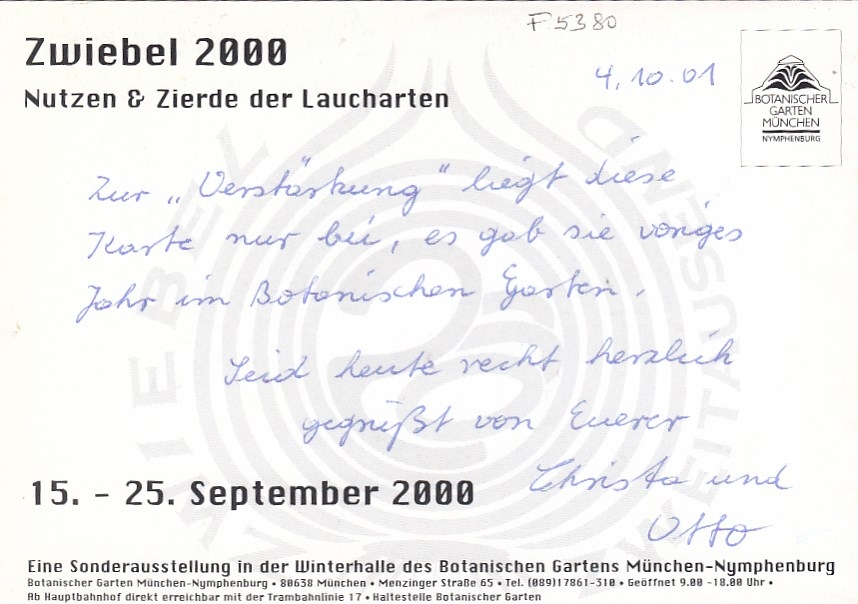 F5380
Zwiebel 2000
4.10.01
Nutzen & Zierde der Laucharten
BOTANISCHER
GARTEN
MÜNCHEN
NYMPHENBURG
Zur „Verstärkung" liegt diese
Karte nur bei, es gab sie voriges
Jahr im Botanischen Garten.
Seid heute recht herzlich
gegrüßt von Euerer
Christa und
Otto
ZWIEBEL ZWEITAUSEND
15. - 25. September 2000
Eine Sonderausstellung in der Winterhalle des Botanischen Gartens München-Nymphenburg
Botanischer Garten München-Nymphenburg • 80638 München • Menzinger Straße 65 • Tel. (089)17861-310 • Geöffnet 9.00 -18.00 Uhr •
Ab Hauptbahnhof direkt erreichbar mit der Trambahnlinie 17 • Haltestelle Botanischer Garten